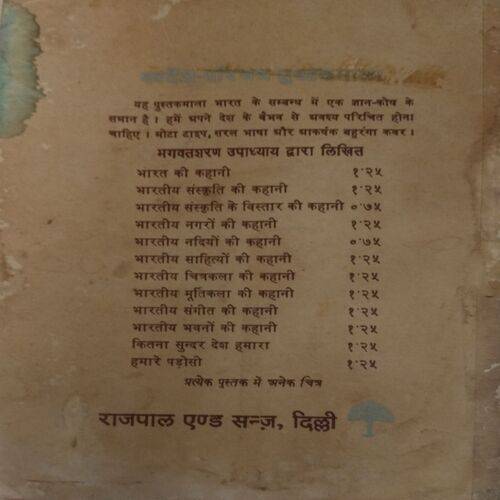 यह पुस्तकमाला भारत के सम्बन्ध में एक ज्ञान-कोष के
समान है। हमें अपने देश के वैभव से अवश्य परिचित होना
चाहिए। मोटा टाइप, सरल भाषा और आकर्षक बहुरंगा कवर।
भगवतशरण उपाध्याय द्वारा लिखित
भारत की कहानी १·२५
भारतीय संस्कृति की कहानी १·२५
भारतीय संस्कृति के विस्तार की कहानी ०·७५
भारतीय नगरों की कहानी १·२५
भारतीय नदियों की कहानी ०·७५
भारतीय साहित्यों की कहानी १·२५
भारतीय चित्रकला की कहानी १·२५
भारतीय मूर्तिकला की कहानी १·२५
भारतीय संगीत की कहानी १·२५
भारतीय भवनों की कहानी १·२५
कितना सुन्दर देश हमारा १·२५
हमारे पड़ोसी १·२५
प्रत्येक पुस्तक में अनेक चित्र
राजपाल एण्ड सन्ज़, दिल्ली